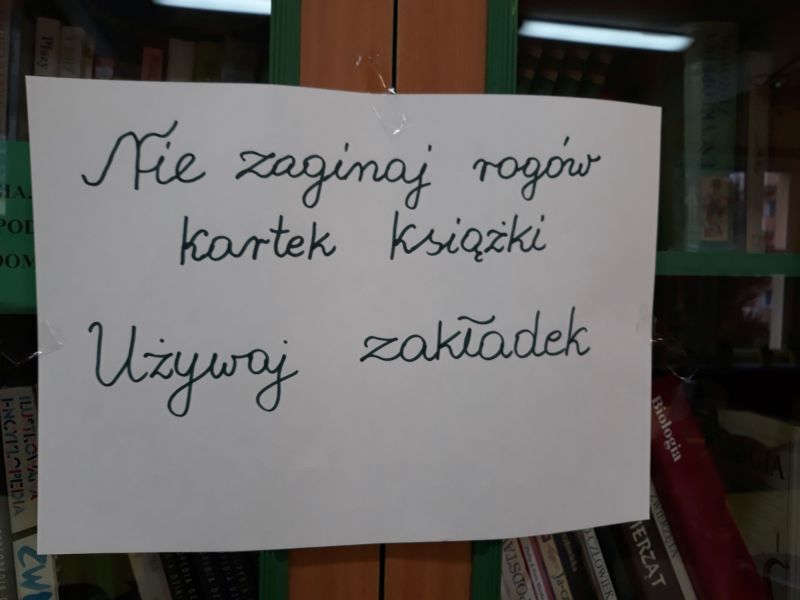 Nie zaginaj rogów
kartek książki
Używaj zakładek
Biologia
ILUSTROWANA
ENCYKLOPEDIA